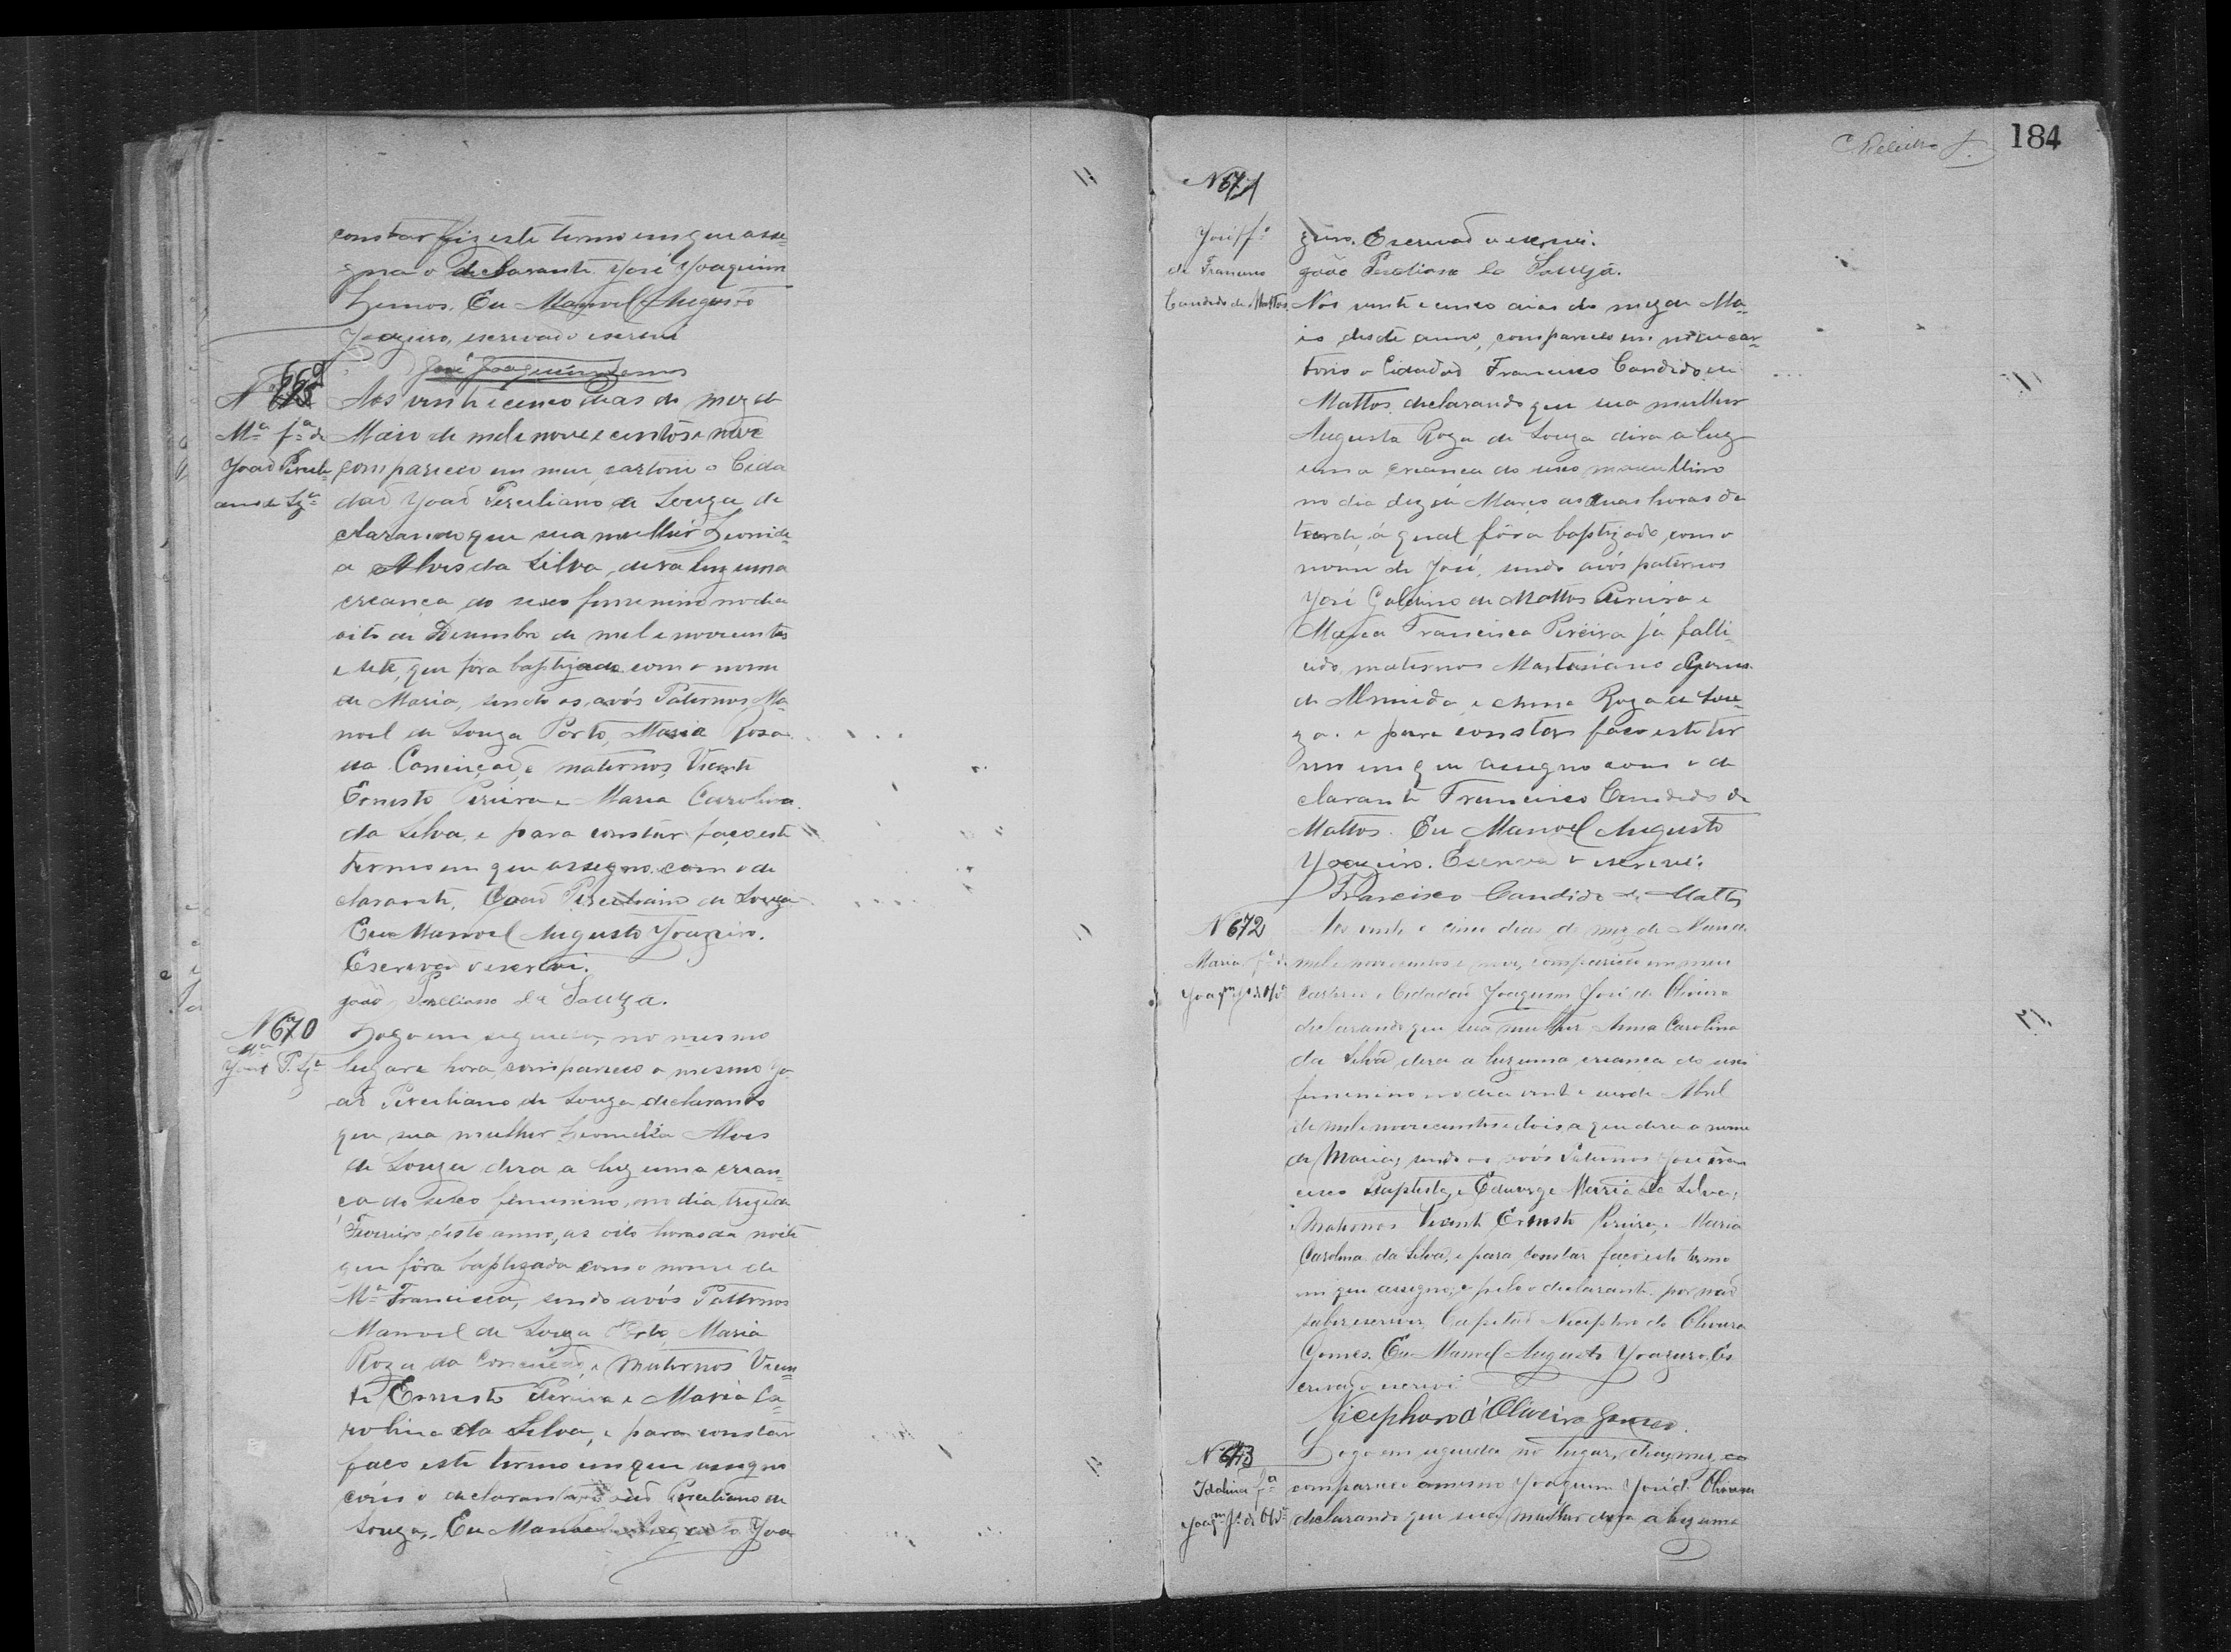 constar fiz este termo em que asse-
gna o declarante José Joaquim
Lemos. Eu Manoel Augusto
Joazeiro, escrivaõ o escrevi
José Joaquim Lemos
Nº 669
Mª fª de
Joaõ Perceli-
ano de Sza
Aos vinte e cinco dias do mez de
Maio de mil e nove e centos e nove
compareceo em meu cartorio o Cida
daõ Joaõ Perciliano de Souza de
clarando que sua mulher Leonidi-
a Alves da Silva, dera luz uma
creança do sexo femenino no dia
oito de Dezembro de mil e novecentos
e sete, que fôra baptizada com o nome
de Maria, sendo os avós Paternos, Ma-
noel de Souza Porto, Maria Rosa
da Conceiçaõ, e maternos, Vicente
Ernesto Pereira e Maria Carolina
da Silva, e para constar faço este
termo em que assegno com o de
clarante, Joaõ Perciliano de Souza
Eu Manoel Augusto Joazeiro.
Escrivaõ o escrevi.
João Perciliano de Souza.
Nº 670
Mª
Joaõ P. Sza
Logo em seguida, no mesmo
lugar e hora, compareceo o mesmo Jo-
aõ Perciliano de Souza declarando
que sua mulher Leonidia Alves
de Souza dera a luz uma crean-
ça do sexo femenino, no dia treze de
Fevereiro deste anno, as oito horas da noite
que fôra baptizada com o nome de
Mª Francisca, sendo avós Patternos
Manoel de Souza Porto, Maria
Roza da Conceicaõ, e Maternos Vicen-
te Ernesto Pereira e Maria Ca-
rolina da Silva, e para constar
faço este termo em que assegno
com o declarante Joaõ Perciliano de
Souza. Eu Manoel Augusto Joa
184
Nº 671
José fº
de Francisco
Candido de Mattos
zeiro. Escrivaõ o escrevi.
João Perciliano de Souza.
Nos vinte e cinco dias do mez de Ma-
io deste anno, compareceo em meu car-
torio o Cidadaõ Francisco Candido de
Mattos, declarando que sua mulher
Augusta Roza de Souza dera a luz
uma creança do sexo masculino
no dia dez de Março as duas horas da
tarde, á qual fôra baptizado, com o
nome de José, sendo avós paternos
José Galdino de Mattos Pereira e
Maria Francisca Pereira já falle-
cido, maternos Martiniano
de Almeida, e Anna Roza de Sou-
za. e para constar faço este ter
mo em que assegno com o de
clarante Francisco Candido de
Mattos. Eu Manoel Augusto
Joazeiro. Escrivaõ o escrevi.
Francisco Candido de Mattos
Nº 672
Maria fª de
Joaqm Jé de Olivª
Aos vinte e cinco dias do mez de Maio de
mil e novecentos e nove, compareceo em meu
Cartorio o Cidadaõ Joaquim José de Oliveira
declarando que sua mulher Anna Carolina
da Silva dera a luz uma creança do sexo
femenino no dia vinte e de Abril
de mil e novecentos e dois, a que dera o nome
de Maria, sendo os avós Paternos José Fran
cisco Baptista, e Eduvirge Maria da Silva;
e Maternos Vicente Ernesto Pereira, e Maria
Carolina da Silva, e para constar faço este termo
em que assegno, e pelo o declarante por naõ
saber escrever, Capitaõ Nicephoro de Oliveira
Gomes. Eu Manoel Augusto Joazeiro, Es
crivaõ o escrevi
Nicephoro d'Oliveira Gomes.
Nº 673
Idalina fª
Joaqm Jé de Olivª
Logo em seguida no lugar, dia, mez,
compareceo o mesmo Joaquim José de Oliveira
declarando que sua mulher dera a luz uma